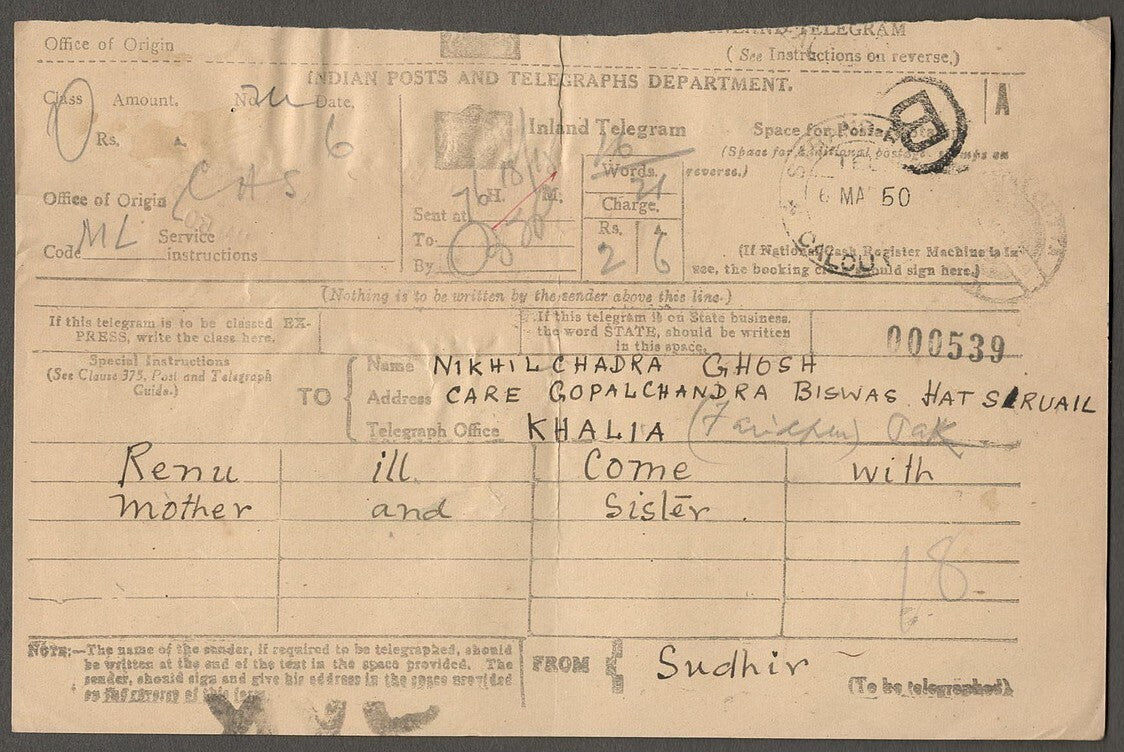 Office of Origin
INLAND TELEGRAM
(See Instructions on reverse.)
INDIAN POSTS AND TELEGRAPHS DEPARTMENT.
A
Class Amount. No. Date.
Rs. A. 6
Inland Telegram
Space for Postage
(Space for additional postage stamps on reverse.)
Office of Origin CHS
Code ML Service instructions
Sent at H. M.
To
By
16
Words.
21
Charge.
Rs.
2 6
6 MA 50
(If National Cash Register Machine is in use, the booking clerk should sign here.)
(Nothing is to be written by the sender above this line.)
If this telegram is to be classed EXPRESS, write the class here.
If this telegram is on State business, the word STATE, should be written in this space.
000539
Special Instructions
(See Clause 375, Post and Telegraph Guide.)
TO
Name NIKHILCHADRA GHOSH
Address CARE GOPALCHANDRA BISWAS HAT SIRUAIL
Telegraph Office KHALIA (Faridpur) Pak
Renu ill. Come with
mother and Sister
18
NOTE:—The name of the sender, if required to be telegraphed, should
be written at the end of the text in the space provided. The
sender, should sign and give his address in the space provided
on the reverse of this form.
FROM Sudhir
(To be telegraphed)